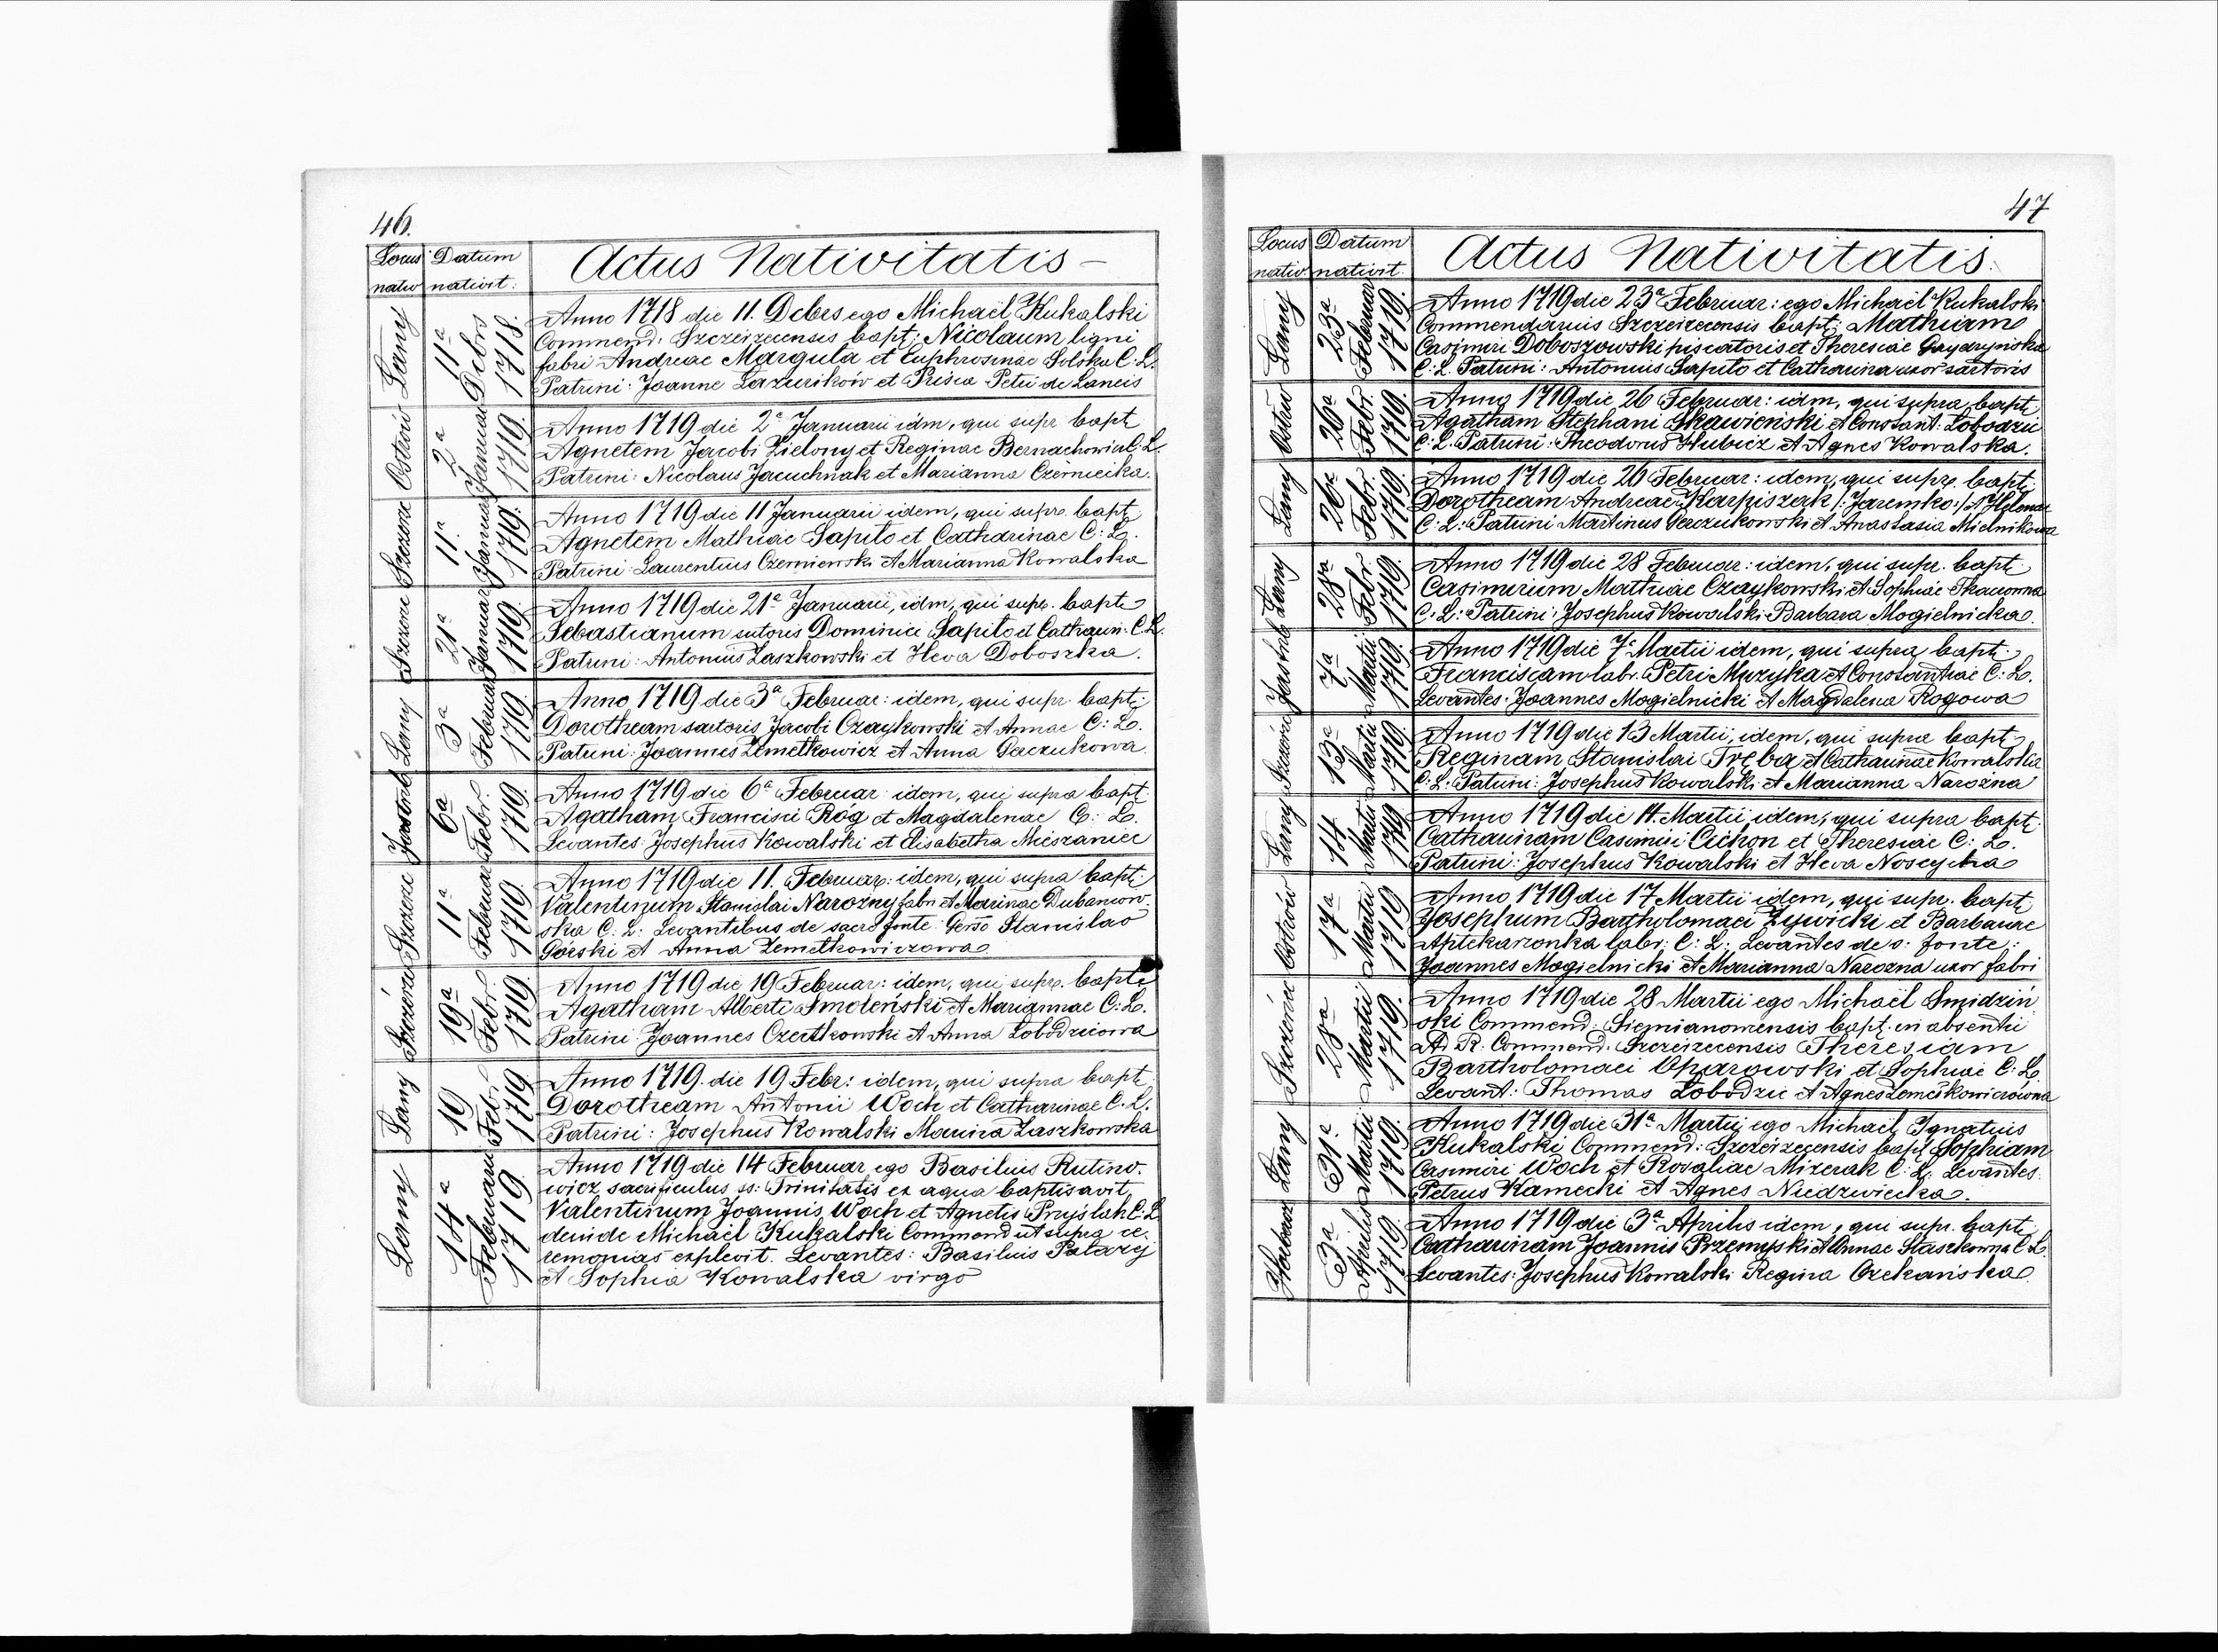 46.
Locus nativ
Datum nativit:
Actus Nativitatis
Łany
11a Debrs 1718.
Anno 1718 die 11. Debrs ego Michaël Kukalski
Commend: Szczeirzecensis bapt: Nicolaum ligni
fabri Andreae Margula et Euphrosinae Solska C. L.
Patrini: Joanne Lazurików et Prisca Petri de Laneis
Ostrów
2a Januar 1719.
Anno 1719 die 2a Januarii idm, qui supr bapt
Agnetem Jacobi Zielony et Reginae Bernachowicz C. L.
Patrini: Nicolaus Jacuchnak et Marianna Czerniecka.
Szczerz
11a Januar 1719.
Anno 1719 die 11 Januarii idem, qui supr. bapt
Agnetem Mathiae Sapito et Catharinae C: L.
Patrini: Laurentius Czerniewski et Marianna Kowalska
Szczerz
21a Januar 1719.
Anno 1719 die 21a Januarii, idm, qui supr. bapt
Sebastianum sutoris Dominici Sapito et Catharin: C. L.
Patrini: Antonius Zaszkowski et Heva Doboszka.
Łany
3a Februar 1719.
Anno 1719 die 3a Februar: idem, qui supr. bapt:
Dorotheam sartoris Jacobi Czaykowski et Annae C: L.
Patrini: Joannes Zemełkowicz et Anna Gerczukowa
6a Febr: 1719.
Anno 1719 die 6a Februar: idem, qui supra bapt:
Agatham Francisci Róg et Magdalenae C: L.
Levantes: Josephus Kowalski et Elisabetha Mieszaniec
Szczerz
11a Februar 1719.
Anno 1719 die 11. Februar: idem, qui supra bapt:
Valentinum Stanislai Narożny fabri et Marinae Dubaniow
ska C: L: Levantibus de sacro fonte Gŕoso Stanislao
Górski et Anna Zemełkowiczowa
19a Febr. 1719.
Anno 1719 die 19 Februar: idem, qui supr. bapt
Agatham Alberti Smoleński et Mariannae C: L.
Patrini: Joannes Czertkowski et Anna Łobodziowa
Łany
19 Febr 1719
Anno 1719. die 19 Febr: idem, qui supra bapt
Dorotheam Antonii Woch et Catharinae C. L.
Patrini: Josephus Kowalski Marina Zaszkowska
Łany
14a Februarii 1719
Anno 1719 die 14 Februar ego Basilius Rutino-
wicz sacrificulus ss: Trinitatis ex aqua baptisavit
Valentinum Joannis Woch et Agnetis Przyślak C. L
deinde Michaël Kukalski Commend ut supra ce-
remonias explevit. Levantes: Basilius Palazy
et Sophia Kowalska virgo
47
Locus nativ
Datum nativit.
Actus Nativitatis.
Łany
23a Februar 1719.
Anno 1719 die 23a Februar: ego Michaël Kukalski
Commendarius Szczeirzecensis bapt: Mathiam
Casimiri Doboszowski piscatoris et Theresiae Gaydzyńska
C. L. Patrini: Antonius Sapito et Catharina uxor sartoris
Ostrów
26a Febr. 1719.
Anno 1719 die 26 Februar: idm, qui supra bapt
Agatham Stephani Skawieński et Constant: Łobodzic
C: L. Patrini: Theodorus Hubicz et Agnes Kowalska.
Łany
26a Febr. 1719.
Anno 1719 die 26 Februar: idem, qui supr. bapt:
Dorotheam Andreae Karpiszak /: Jaremko:/ et Helenae
C: L: Patrini Martinus Gerczukowski et Anastasia Mielnikowa
Łany
28a Febr. 1719.
Anno 1719 die 28 Februar: idem, qui supr. bapt:
Casimirum Mathiae Czaykowski et Sophiae Tkaczowna
C: L: Patrini: Josephus Kowalski Barbara Mogielnicka.
7a Martii 1719
Anno 1719 die 7a Martii idem, qui supra bapt:
Franciscam labr. Petri Muzyka et Constantiae C: L.
Levantes: Joannes Mogielnicki et Magdalena Rogowa
13a Martii 1719
Anno 1719 die 13 Martii, idem, qui supra bapt
Reginam Stanislai Tręba et Catharinae Kowalska
C. L. Patrini: Josephus Kowalski et Marianna Narożna
Łany
14 Martii 1719
Anno 1719 die 14. Martii idem, qui supra bapt.
Catharinam Casimiri Cichon et Theresiae C: L.
Patrini: Josephus Kowalski et Heva Noseyka
Ostrów
17a Martii 1719
Anno 1719 die 17 Martii idem, qui supr. bapt
Josephum Bartholomaei Zywicki et Barbarae
Aptekarzonka labr: C: L: Levantes de s: fonte:
Joannes Mogielnicki et Marianna Narozna uxor fabri
28a Martii 1719.
Anno 1719 die 28 Martii ego Michaël Smidziń
ski Commend: Siemianowensis bapt. in absentii
Ad. R. Commend. Szczeirzecensis Theresiam
Bartholomaei Oparowski et Sophiae C: L.
Levant: Thomas Łobodzic et Agnes Zemełkowiczówna
Łany
31a Martii 1719.
Anno 1719 die 31a Martii ego Michaël Ignatius
Kukalski Commend: Szczeirzecensis bapt Sophiam
Casimiri Woch et Rosaliae Mizerak C: L: Levantes:
Petrus Kamecki et Agnes Niedzwiecka.
3a Aprilis 1719.
Anno 1719 die 3a Aprilis idem, qui supr. bapt:
Catharinam Joannis Przemyski et Annae Staszkowna C: L.
Levantes: Josephus Kowalski Regina Czekańska